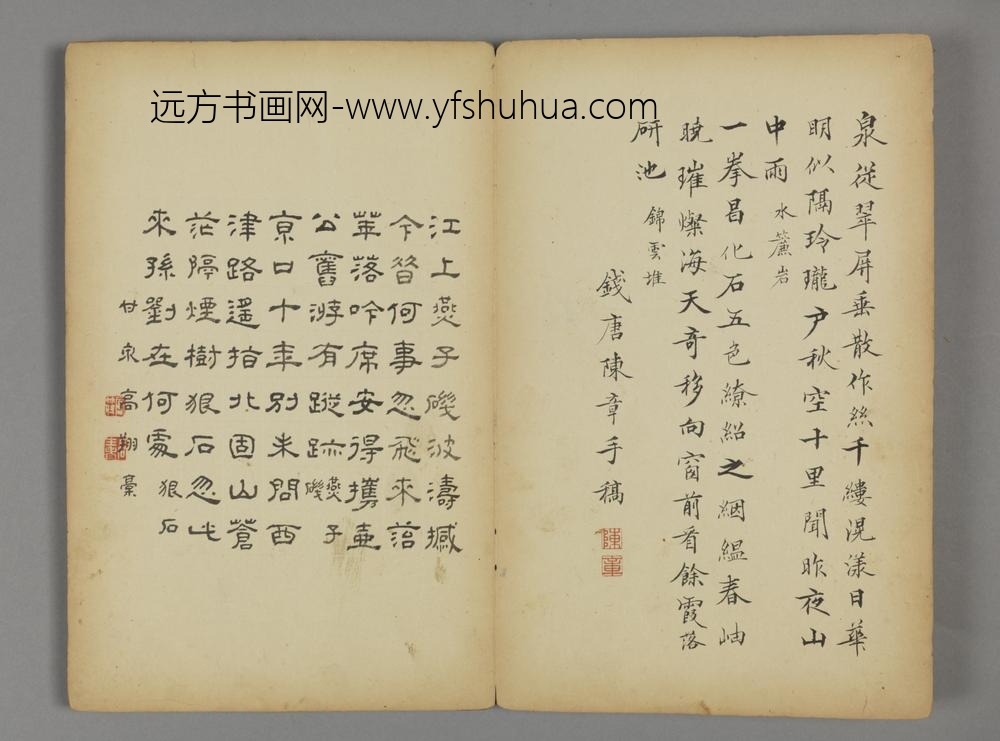 远方书画网-www.yfshuhua.com
泉從翠屏垂散作絲千縷滉漾日華
明似隔玲瓏户秋空十里聞昨夜山
中雨 水簾岩
一拳昌化石五色繚紹之絪緼春岫
曉璀燦海天奇移向窗前看餘霞落
研池 錦雲堆
錢唐陳章手稿
陳章
江上燕子磯波濤撼
今昝何事忽飛來菭
華落吟席安得攜壷
公舊游有蹤跡燕子磯
京口十年別未問西
津路遙指北固山蒼
茫隔煙樹狠石忽上
來孫劉在何處狠石
甘泉高翔稾